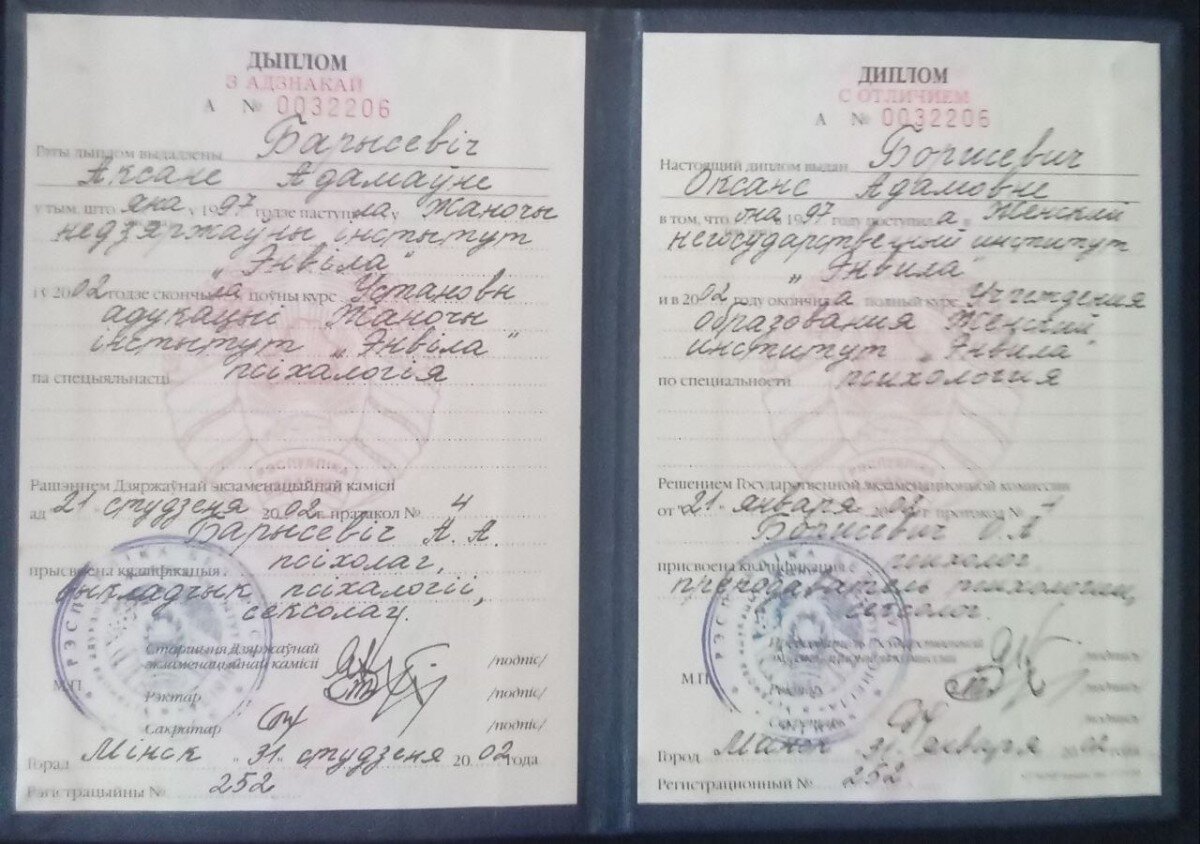 ДЫПЛОМ
З АДЗНАКАЙ
А № 0032206
Гэты дыплом выдадзены Барысевіч
Аксане Адамаўне
у тым, што яна у 1997 годзе паступіла у Жаночы
недзяржаўны інстытут
„Энвіла"
і у 2002 годзе скончыла поўны курс Установы
адукацыі Жаночы
інстытут „Энвіла"
па спецыяльнасці псіхалогія
РЭСПУБЛІКА
Рашэннем Дзяржаўнай экзаменацыйнай камісіі
ад 21 студзеня 2002 г. пратакол № 4
Барысевіч А. А.
прысвоена кваліфікацыя псіхолаг,
выкладчык псіхалогіі,
сексолаг.
Старшыня Дзяржаўнай
экзаменацыйнай камісіі /подпіс/
М.П.
Рэктар /подпіс/
Сакратар /подпіс/
Горад Мінск „31" студзеня 2002 года
Рэгістрацыйны № 252
ДИПЛОМ
С ОТЛИЧИЕМ
А № 0032206
Настоящий диплом выдан Борисевич
Оксане Адамовне
в том, что она в 1997 году поступила в Женский
негосударственный институт
„Энвила"
и в 2002 году окончила полный курс Учреждения
образования Женский
институт „Энвила"
по специальности психология
РЭСПУБЛІКА
Решением Государственной экзаменационной комиссии
от „21" января 2002 г. протокол № 4
Борисевич О. А.
присвоена квалификация психолог
преподаватель психологии,
сексолог.
М.П.
Город Минск 31 января 2002 года
Регистрационный № 252